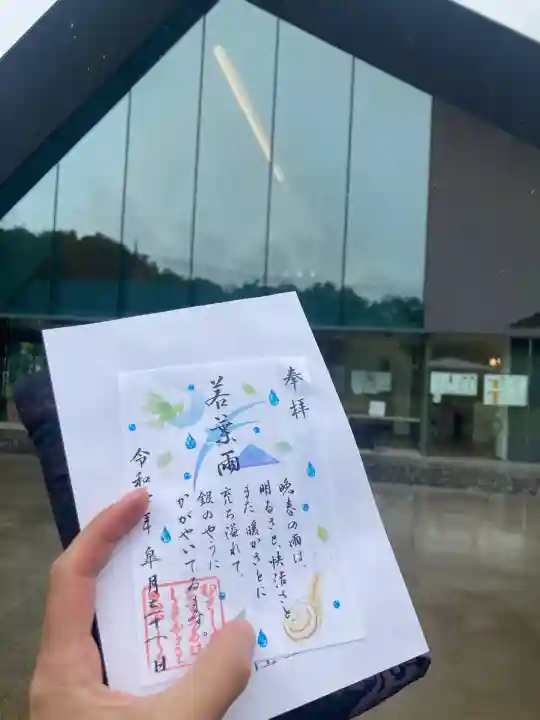 奉拝
若葉雨
晩春の雨は、
明るさと、快活さと
また暖かさとに
充ち溢れて、
銀のやうに
かがやいてゐます。
令和 年 皐月二十一日